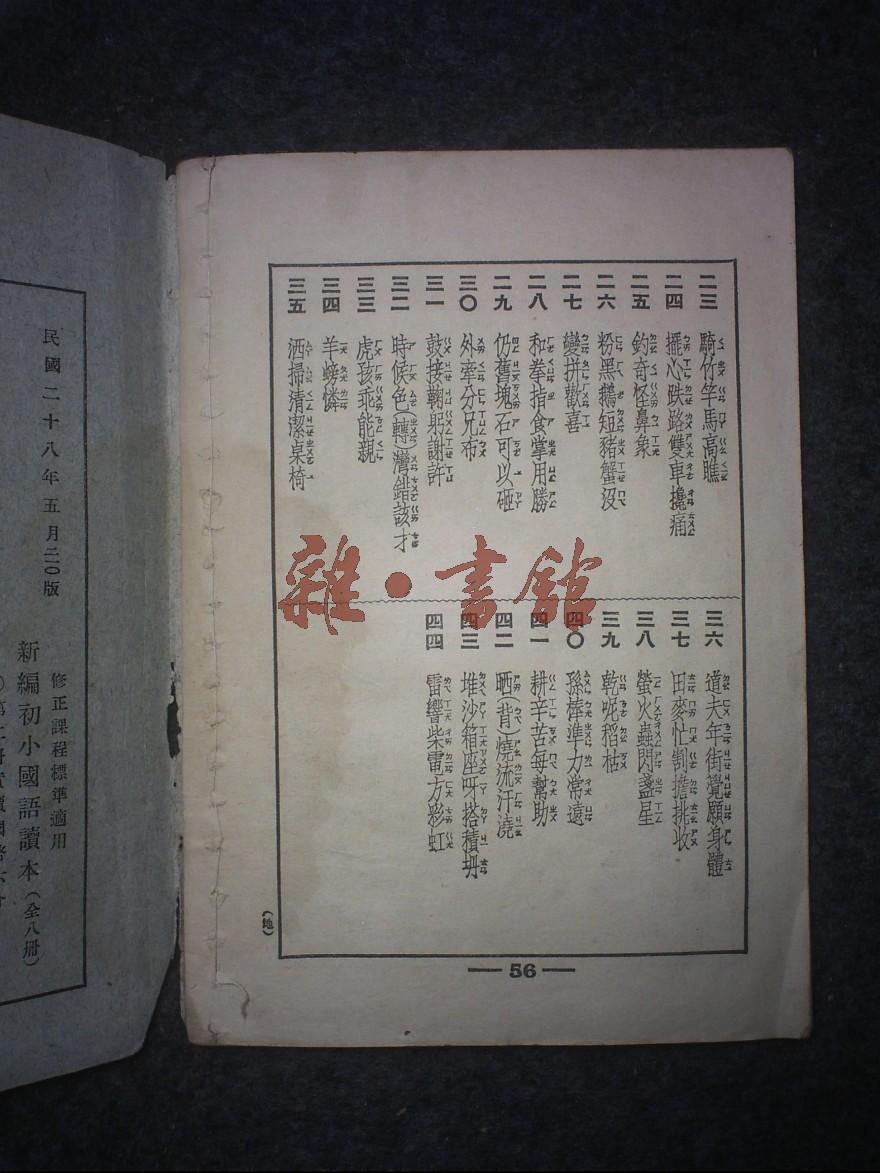 二三 騎竹竿馬高瞧
二四 擺心跌路雙車攙痛
二五 釣奇怪鼻象
二六 粉黑鵝短豬蟹沒
二七 變拼歡喜
二八 和拳指食掌用勝
二九 仍舊塊石可以砸
三〇 外牽分兄布
三一 鼓接鞠躬謝許
三二 時候色(轉)灣錯該才
三三 虎孩乖能親
三四 羊螃憐
三五 洒掃清潔桌椅
三六 道夫年街覺願身體
三七 田麥忙割擔挑收
三八 螢火蟲閃盞星
三九 乾呢稻枯
四〇 孫棒準力常遠
四一 耕辛苦每幫助
四二 晒(背)燒流汗澆
四三 堆沙箱座呀搭積坍
四四 雷響柴電方彩虹
(地)
56
雜·書館
民國二十八年五月二〇版
修正課程標準適用
新編初小國語讀本(全八冊)